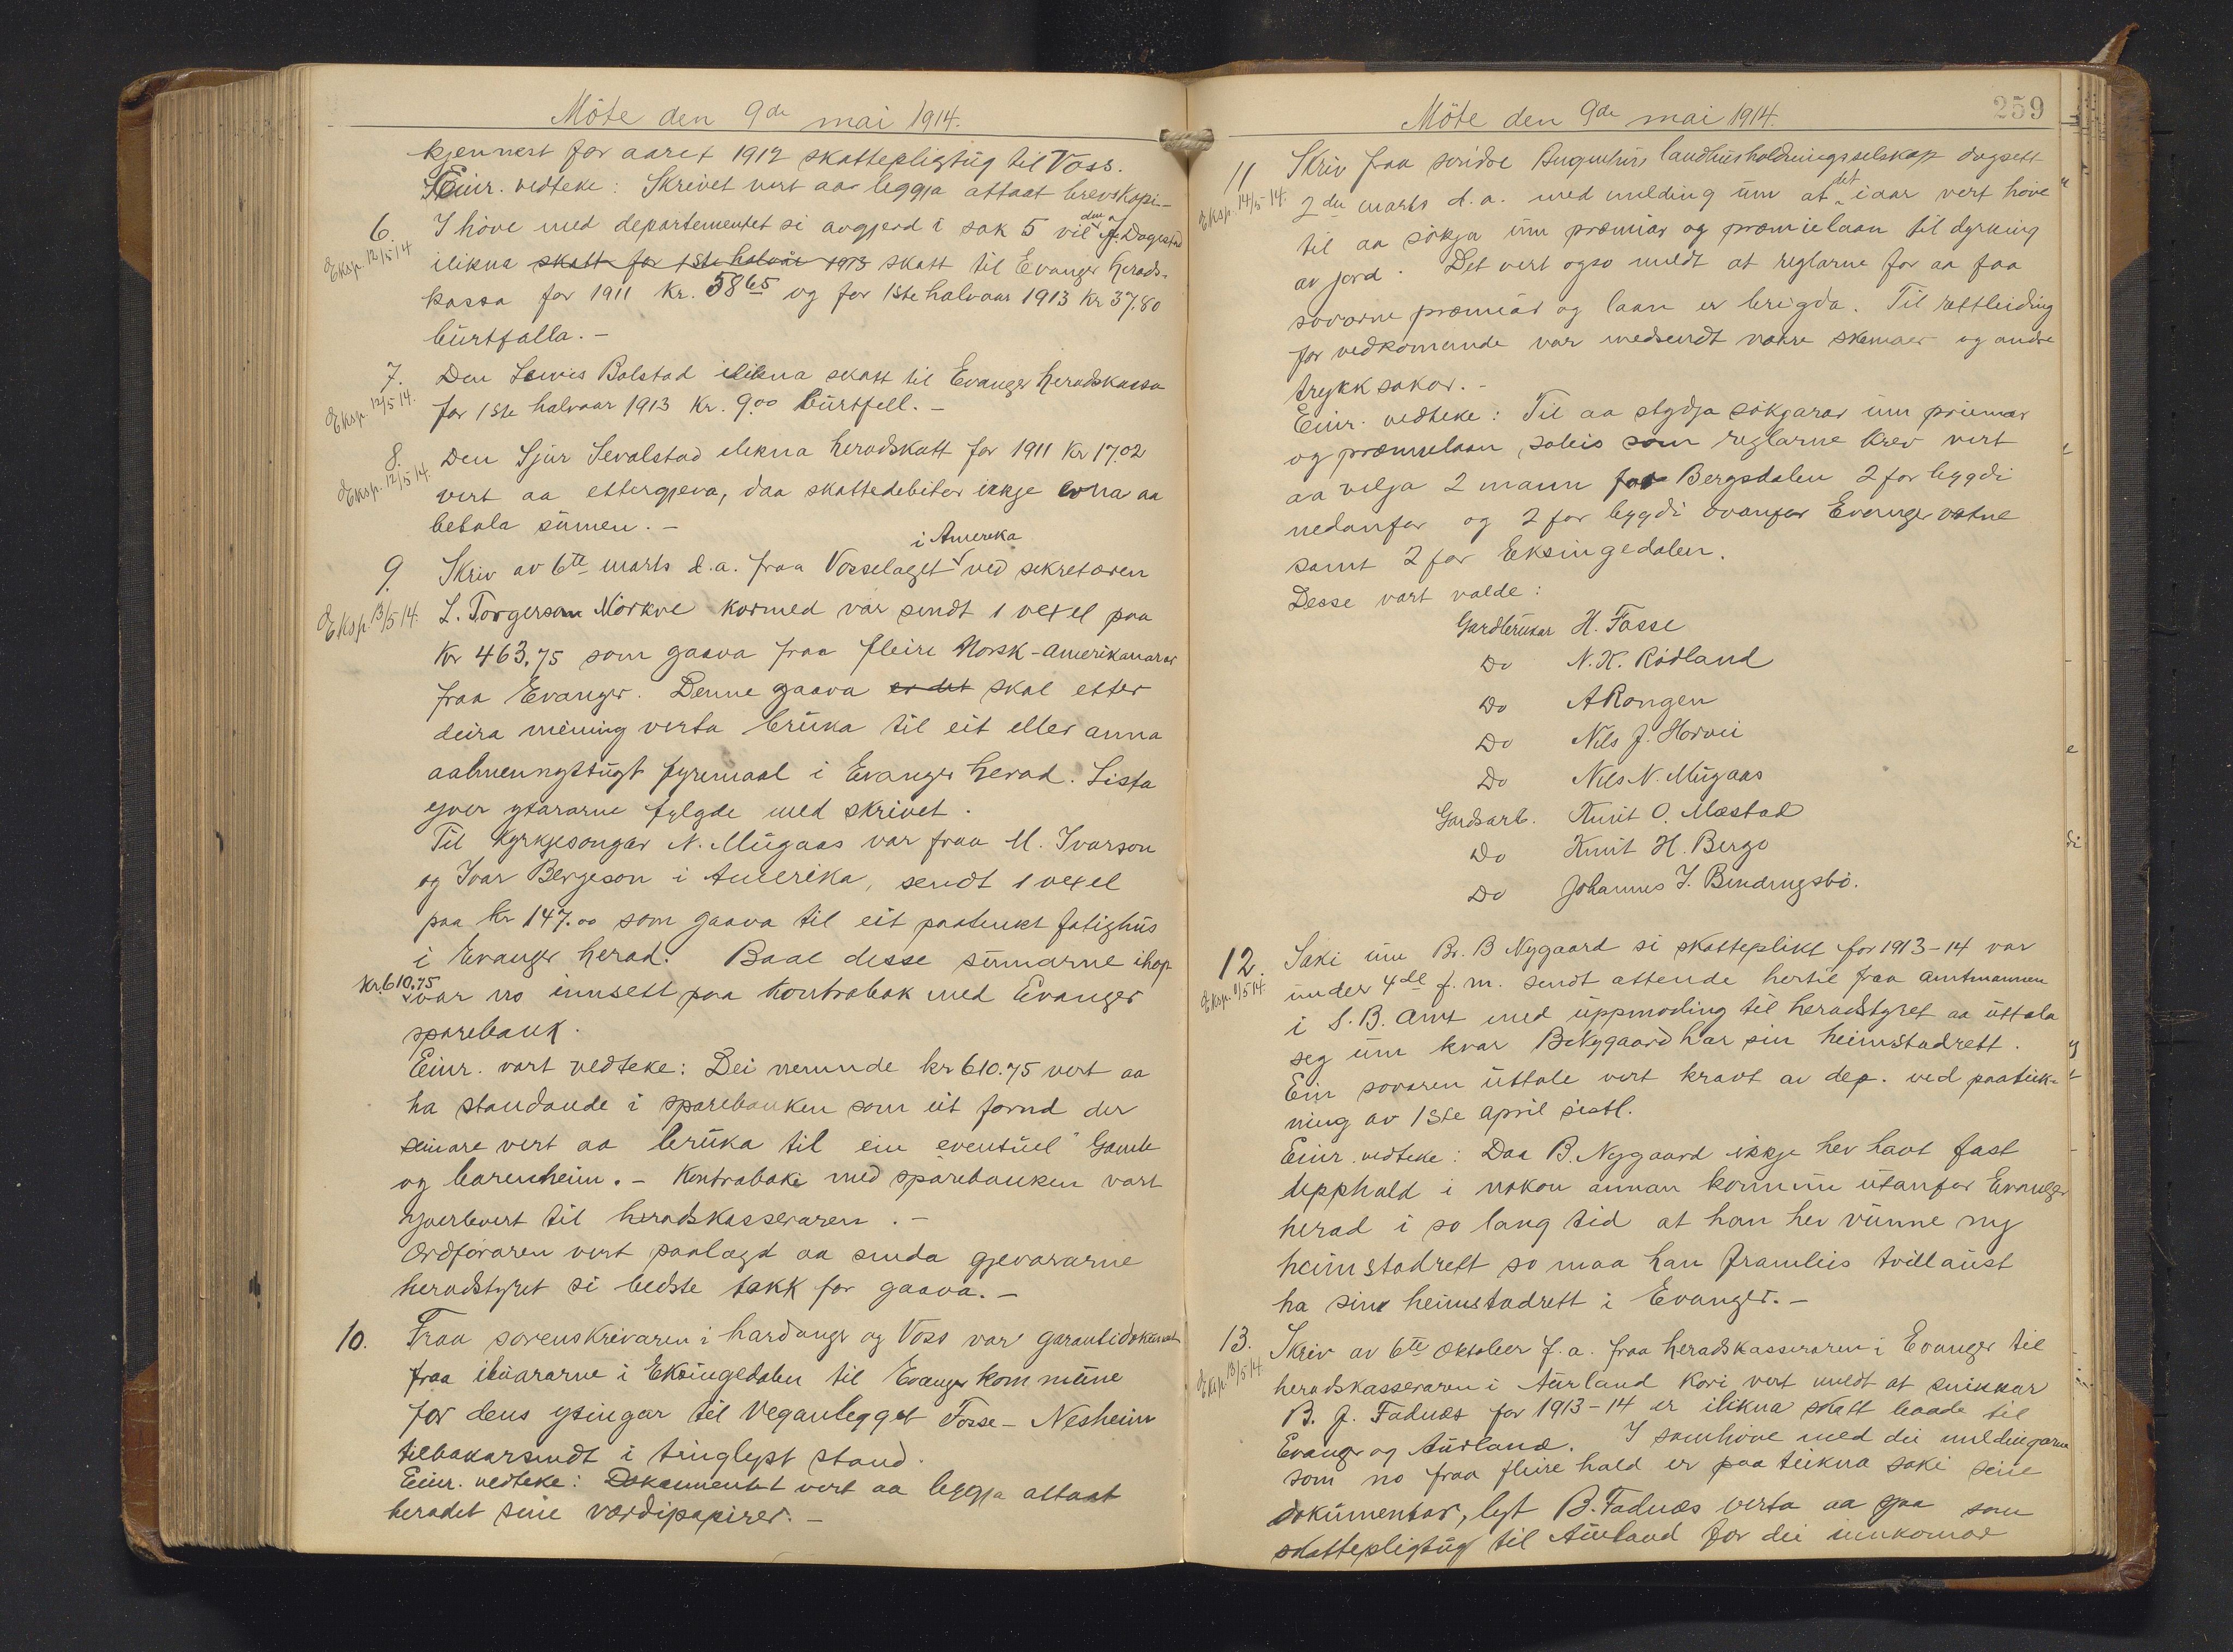 Möte den 9de mai 1914.
kjennest for aaret 1912 skattepligtug til Voss.
Einr. vedteke: Skrivet vert aa leggja attaat brevskapi.-
6. I höve med departementet si avgjerd i sak 5 vil den A. Dagestad
Eksp. 12/5 14
ilikna skatt for 1ste halvår 1913 skatt til Evanger herads-
kassa for 1911 kr. 5865 og for 1ste halvaar 1913 kr 37.80
burtfalla.-
7. Den Bolstad ilikna skatt til Evanger heradskassa
Eksp. 12/5 14.
for 1ste halvaar 1913 kr. 9.00 burtfell.-
8. Den Sjur Sevalstad ilikna heradskatt for 1911 kr 17.02
Eksp. 12/5 14.
vert aa ettergjeva, daa skattedebitor ikkje evna aa
betala sumen.-
i Amerika
9. Skriv av 6te marts d.a. fraa Vosselaget ved sekretæren
Eksp. 13/5 14.
L. Torgerson Mörkve kormed var sendt 1 vexel paa
kr 463.75 som gaava fraa fleire Norsk-amerikanarar
fraa Evanger. Denne gaava er det skal etter
deira mening verta bruka til eit eller anna
aalmenngstugt fyremaal i Evanger herad. Lista
yver ytararne fylgde med skrivet.
Til kyrkjesongar N. Mugaas var fraa M. Ivarson
og Ivar Bergeson i Amerika, sendt 1 vexel
paa kr 147.00 som gaava til eit paatenkt fatighus
i Evanger herad. Baae desse sumarne ihop
kr. 610.75
var no innsett paa kontrabok med Evanger
sparebank.
Einr. vart vedteke: Dei nemnde kr 610.75 vert aa
ha standande i sparebanken som eit fornd der
seinare vert aa bruka til ein eventuel Gamle
og barneheim.- Kontraboki med sparebanken vart
yverlevert til heradskasseraren.-
Ordföraren vert paalagt aa senda gjevararne
heradstyret si bedste takk for gaava.-
10. Fraa sorenskrivaren i hardanger og Voss var garantidokument
fraa ibuararne i Eksingedalen til Evanger kommune
for dens ytingar til veganlegget Fosse-Nesheim
tilbakarsendt i tinglyst stand.
Einr. vedteke: Dokumentet vert aa leggja attaat
heradet sine værdipapirer.-
Möte den 9de mai 1914.
259
11 Skriv fraa söndre Bergenhus landhusholdningsselskap dagsett
Eksp. 14/5 14.
2den marts d.a. med melding um at det iaar vert höve
til aa sökja um præmiar og præmielaan til dyrking
av jord. Det vert ogso meldt at reglarne for aa faa
sovorne præmiar og laan er brigda. Til rettleiding
for vedkomande var medsendt nokre skemaer og andre
trykksakor.-
Einr. vedteke: Til aa stydja sökjarar um præmiar
og præmielaan, soleis som reglarne krev vert
aa velja 2 mann for Bergsdalen 2 for bygdi
nedanfor og 2 for bygdi ovanfor Evangervatne
samt 2 for Eksingedalen.
Desse vart valde:
Gardbrukar H. Fosse
Do N. K. Rödland
Do A Rongen
Do Nils J. Horvei
Do Nils N. Mugaas
Gardsarb. Knut O. Mæstad
Do Knut H. Bergo
Do Johannes J. Bendingsbö.
12. Saki um Br. B Nygaard si skatteplikt for 1913-14 var
Eksp. 11/5 14.
under 4de f. m. sendt attende hertil fraa amtmannen
i S. B. amt med uppmoding til heradstyret aa uttala
seg um kvar B Nygaard har sin heimstadrett.
Ein sovoren uttale vert kravt av dep. ved paateik-
ning av 1ste april sistl.
Einr. vedteke: Daa B. Nygaard ikkje hev havt fast
upphald i nokon annan kommune utanfor Evanger
herad i so lang tid at han hev vunne ny
heimstadrett so maa han framleis tvillaust
ha sin heimstadrett i Evanger.-
13. Skriv av 6te Oktober f.a. fraa heradskasseraren i Evanger til
Eksp. 13/5 14
heradskasseraren i Aurland kori vert meldt at snikkar
B. J. Fadnes for 1913-14 er ilikna skatt baade til
Evanger og Aurland. I samhöve med dei meldingarne
som no fraa fleire hald er paateikna saki sine
dokumentar, lyt B. Fadnes verta aa sjaa som
skattepligtug til Aurland for dei innkomor